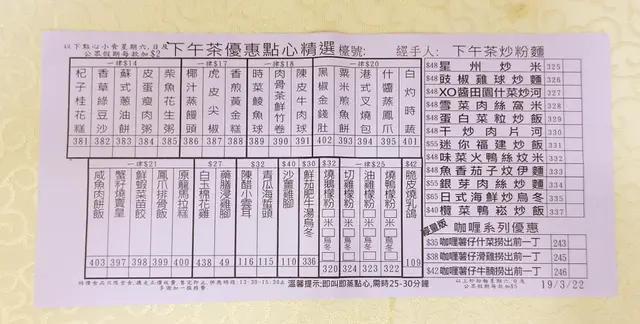 以下點心小食星期六,日及
公眾假期每款加$2
下午茶優惠點心精選 檯號: 經手人: 下午茶炒粉麵
一律$16 一律$17 一律$18 一律$20
杞子桂花糕 381
香草綠豆沙 383
蘇式蔥油餅 384
皮蛋瘦肉粥 385
柴魚花生粥 386
椰汁蒸饅頭 387
虎皮尖椒 388
香煎黃金糕 388
時菜鯪魚球 389
肉骨茶鮮竹卷 390
陳皮牛肉球 391
黑椒金錢肚 402
粟米煎魚餅 392
港式叉燒包 393
什醬蒸鳳爪 394
白灼時蔬 401
一律$21 $27 $32 $40 $30 一律$25 $42
咸魚肉餅飯 403
蟹籽燒賣皇 397
鮮蝦菜苗餃 398
鳳爪排骨飯 400
原籠馬拉糕 399
白玉棉花雞 438
藥膳浸雞腳 49
陳醋小雲耳 116
青瓜海蜇頭 115
沙薑雞腳 110
鮮茄肥牛湯烏冬 336
燒鵝檬粉 米 烏冬 320
切雞檬粉 米 烏冬 324
油雞檬粉 米 烏冬 321
燒鴨檬粉 米 烏冬 322
脆皮燒乳鴿 109
$48 星州炒米 325
$48 豉椒雞球炒麵 326
$48 XO醬田園什菜炒河 327
$48 雪菜肉絲窩米 328
$48 蛋白菜粒炒飯 329
$48 干炒肉片河 330
$55 迷你福建炒飯 331
$48 味菜火鴨絲炆米 332
$48 魚香茄子炆伊麵 333
$55 銀芽肉絲炒麵 334
$65 日式海鮮炒烏冬 335
$40 欖菜鴨崧炒飯 337
經皇版 咖喱系列優惠
$35 咖喱薯仔什菜撈出前一丁 243
$35 咖喱薯仔滑雞撈出前一丁 245
$42 咖喱薯仔牛腩撈出前一丁 246
溫馨提示:即叫即蒸點心,需時25-30分鐘
公眾假期每款加$5
19/3/22